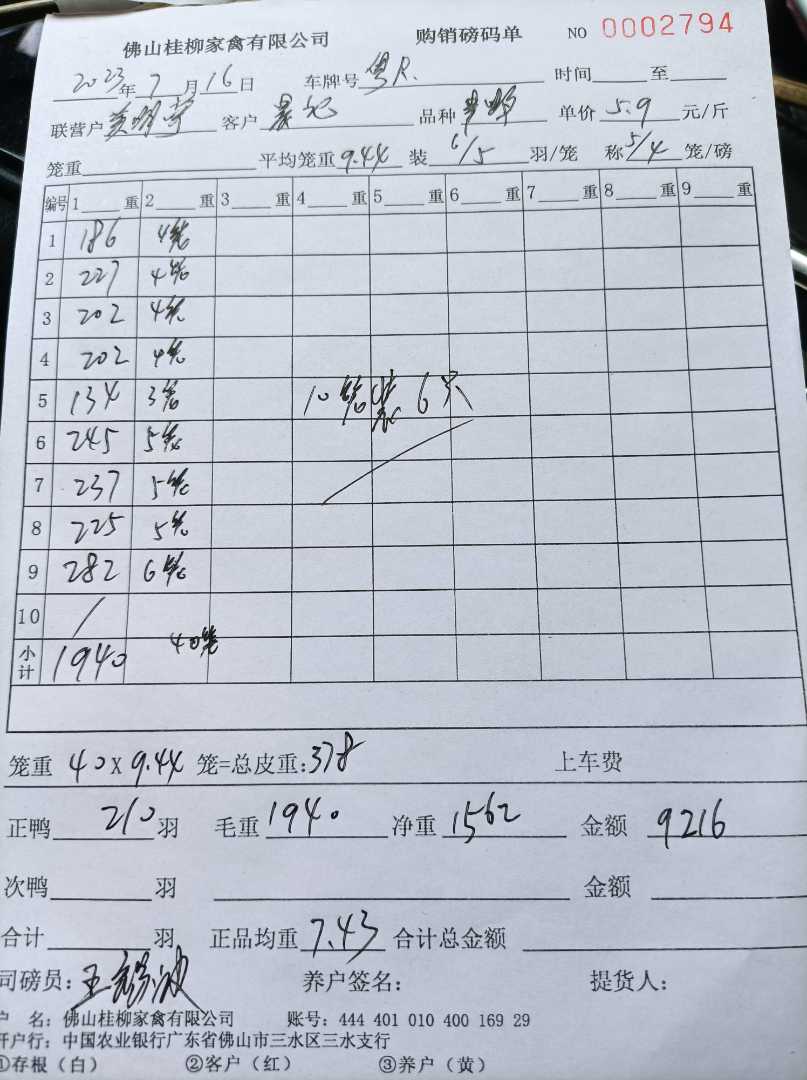 佛山桂柳家禽有限公司 购销磅码单 NO 0002794
2023年7月16日 车牌号 粤R. 时间 至
联营户 客户 记 品种 单价 5.9 元/斤
笼重 平均笼重 9.44 装 6/5 羽/笼 称 5/4 笼/磅
编号 1 重 2 重 3 重 4 重 5 重 6 重 7 重 8 重 9 重
1 186 4笼
2 227 4笼
3 202 4笼
4 202 4笼
5 134 3笼 10笼装6只
6 245 5笼
7 237 5笼
8 225 5笼
9 282 6笼
10 /
小计 1940 40笼
笼重 40X9.44 笼=总皮重:378 上车费
正鸭 210 羽 毛重 1940 净重 1562 金额 9216
次鸭 羽 金额
合计 羽 正品均重 7.43 合计总金额
司磅员: 王 养户签名: 提货人:
户 名: 佛山桂柳家禽有限公司 账号: 444 401 010 400 169 29
开户行: 中国农业银行广东省佛山市三水区三水支行
①存根(白) ②客户(红) ③养户(黄)